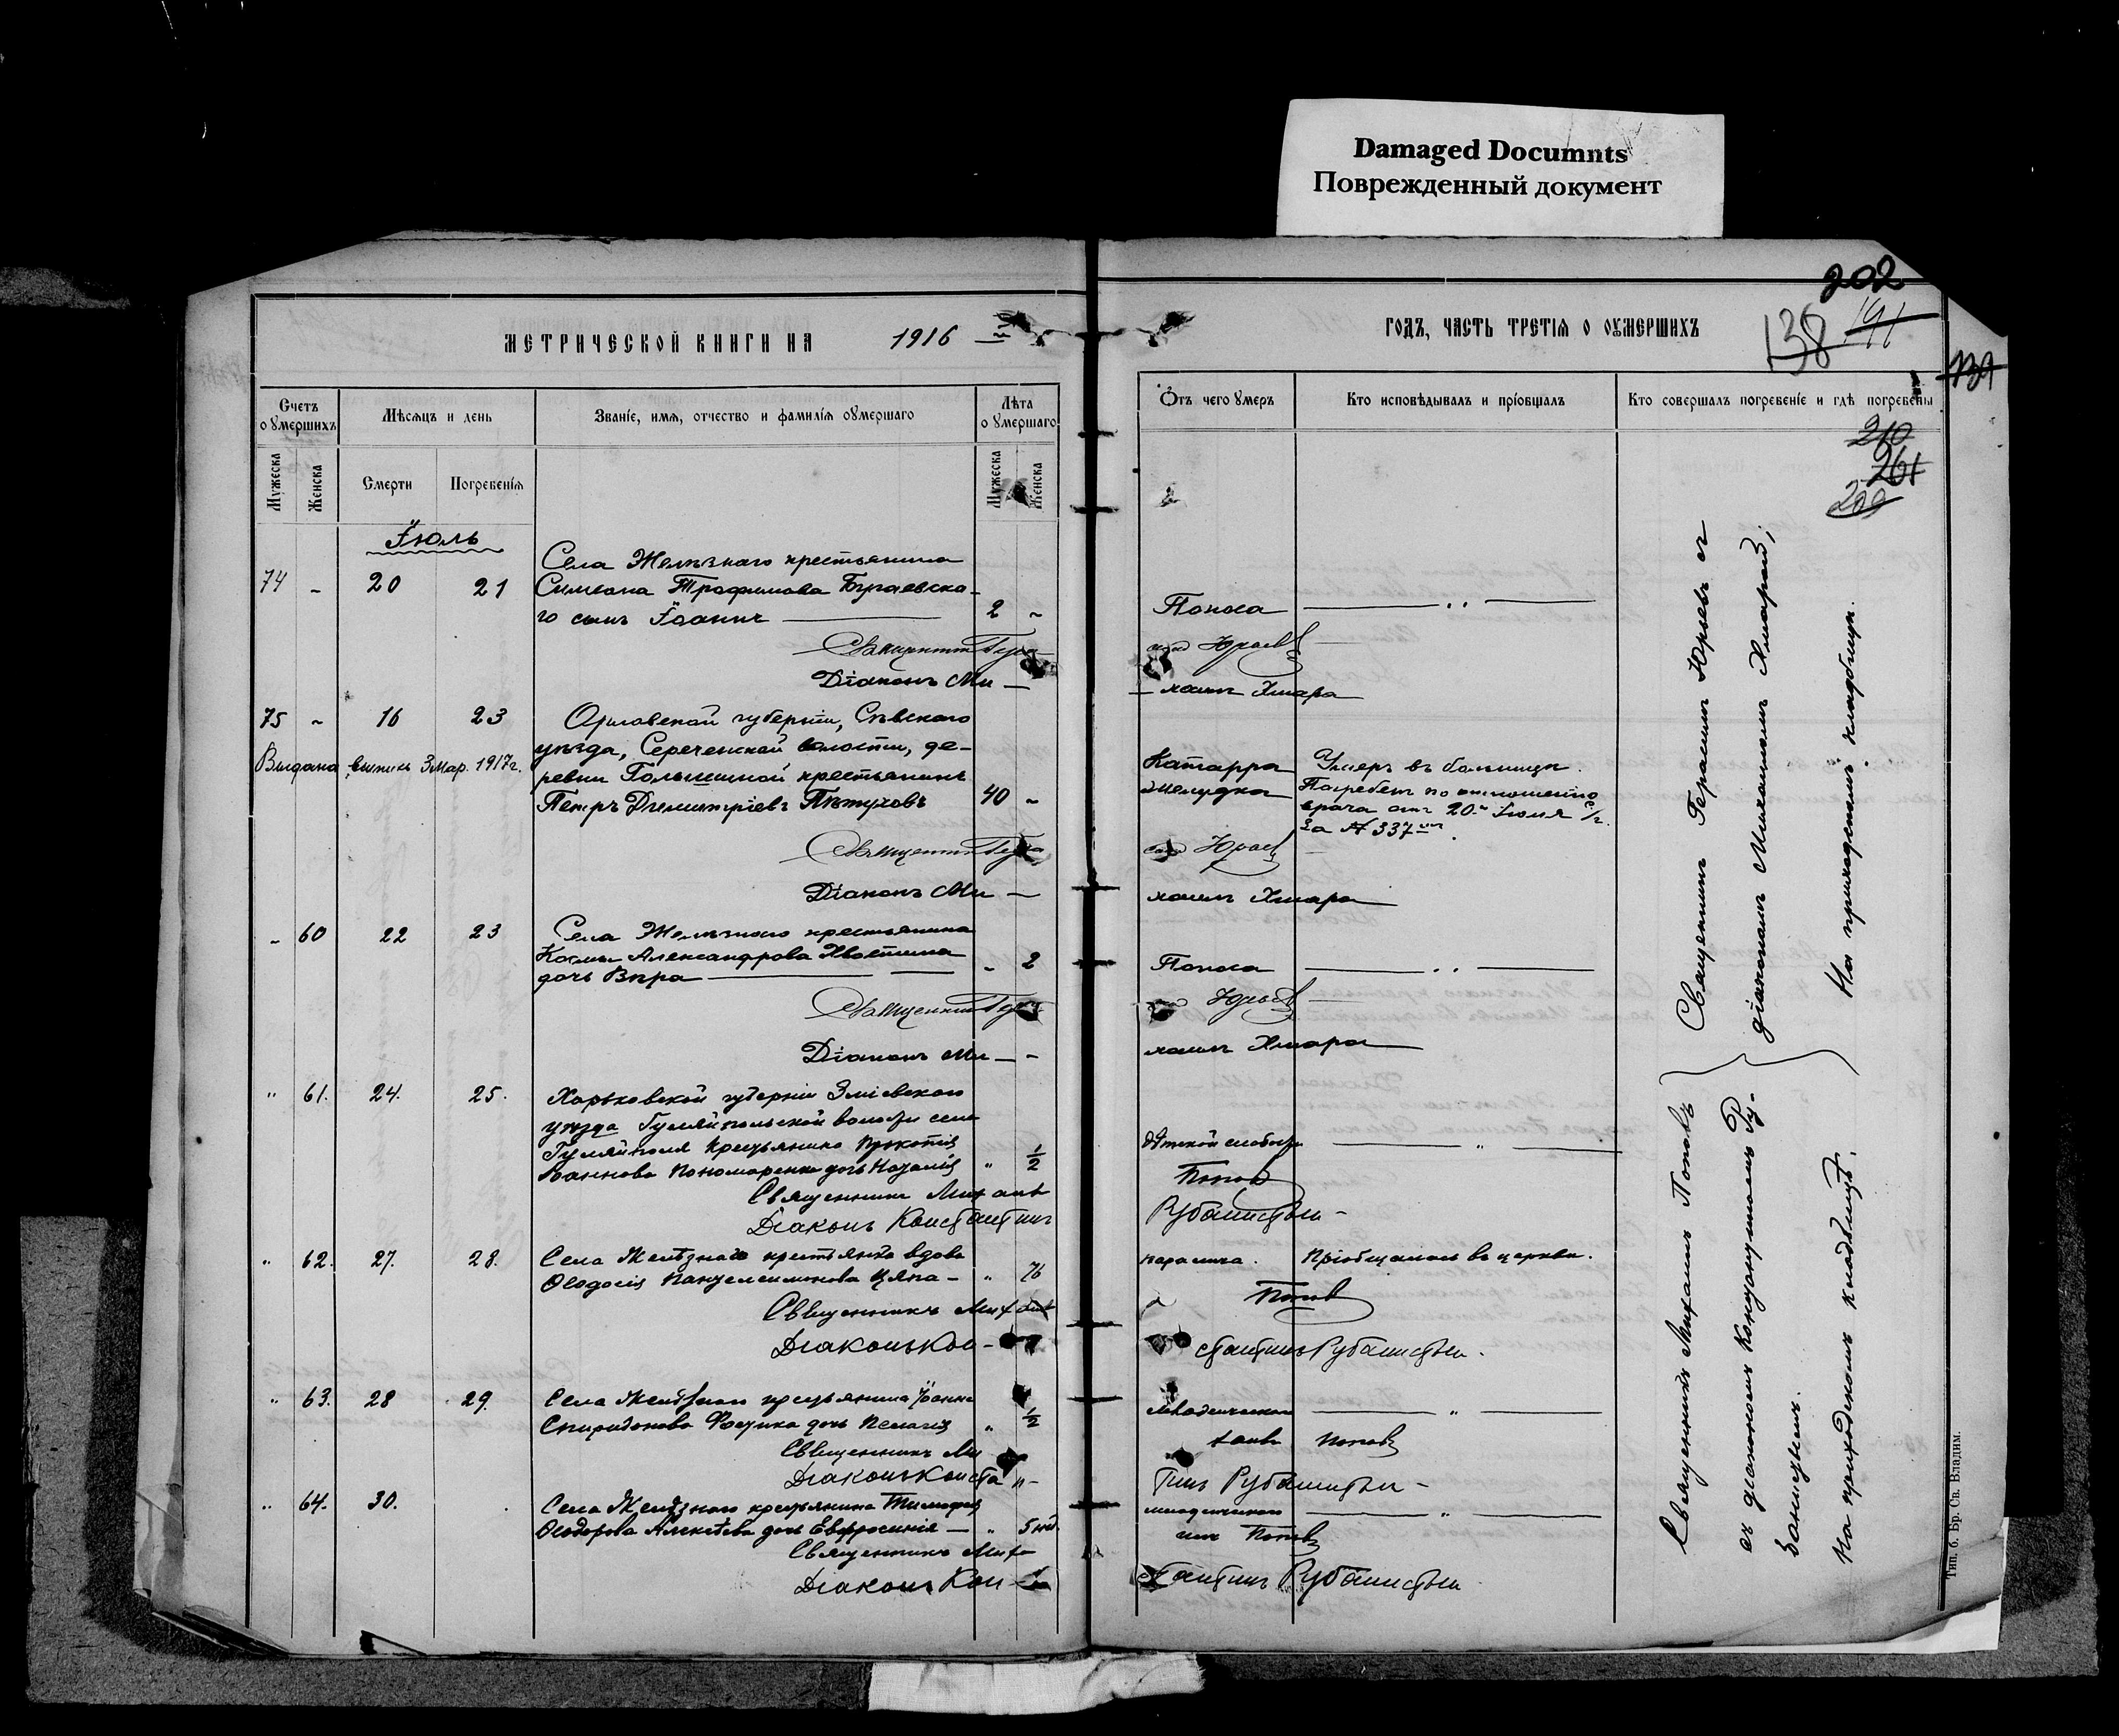 Damaged Documnts
Поврежденный документ
202
138 191
139
МЕТРИЧЕСКОЙ КНИГИ НА 1916 ГОДЪ, ЧАСТЬ ТРЕТІЯ О ОУМЕРШИХЪ
Счетъ оумершихъ
Мѣсяцъ и день
Званіе, имя, отчество и фамилія оумершаго
Лѣта оумершаго
Отъ чего умеръ
Кто исповѣдывалъ и пріобщалъ
Кто совершалъ погребеніе и гдѣ погребены
Мужеска
Женска
Смерти
Погребенія
Мужеска
Женска
210
261
200
Іюль
Села Желѣзнаго крестьянина
74 - 20 21 Симеона Трофимова Бугаевска-
го сынъ Іоаннъ 2 ~ Поноса
Священникъ Юрьевъ
Діаконъ Ми-
хаилъ Хмара
75 ~ 16 23 Орловской губерніи, Сѣвскаго
уѣзда, Сереченской волости, де-
Выдана выпись 3 мар. 1917 г.
ревни Голышиной крестьянинъ
Петръ Димитріевъ Пѣтуховъ 40 ~
Катарра
желудка
Умеръ въ больницѣ.
Погребенъ по отношенію
врача отъ 20-го Іюля с/г.
за № 337-мъ.
Священникъ Юрьевъ
Діаконъ Ми-
хаилъ Хмара
- 60 22 23 Села Желѣзнаго крестьянина
Космы Александрова Хвостина
дочь Вѣра - 2 Поноса
Священникъ Юрьевъ
Діаконъ Ми-
хаилъ Хмара
" 61. 24. 25. Харьковской губерніи Зміевского
уѣзда Гуляйпольской волости села
Гуляйполя крестьянина Прокопія
Іоаннова Пономаренка дочь Наталія " 1/2 дѣтской слабости
Священникъ Михаилъ Поповъ
Діаконъ Константинъ Рубанистый
" 62. 27. 28. Села Желѣзнаго крестьянка вдова
Ѳеодосія Пантелеимонова Цяпа " 76
паралича. Пріобщалась въ церкви.
Священникъ Михаилъ Поповъ
Діаконъ Кон-
стантинъ Рубанистый.
" 63. 28 29. Села Желѣзнаго крестьянина Іоанна
Спиридонова дочь Пелагія " 1/2
младенческой
Священникъ Ми-
хаилъ Поповъ
Діаконъ Конста-
тинъ Рубанистый
" 64. 30. Села Желѣзнаго крестьянина Тимофея
Ѳеодорова Алексѣева дочь Евфросинія " 5 нд.
младенческой
Священникъ Миха-
илъ Поповъ
Діаконъ Кон-
стантинъ Рубанистый
Священникъ Герасимъ Юрьевъ съ
діакономъ Михаиломъ Хмарой;
На приходскомъ кладбищѣ.
Священникъ Михаилъ Поповъ
съ діакономъ Константиномъ Ру-
банистымъ.
На приходскомъ кладбищѣ.
Тип. б. Бр. Св. Владим.